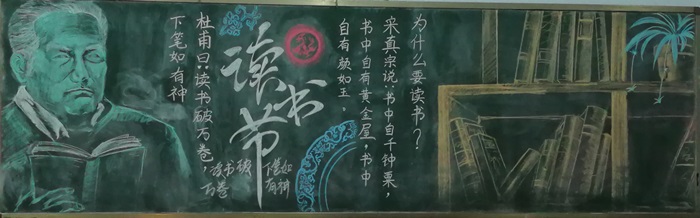 为什么要读书？
宋真宗说：书中自千钟粟，
书中自有黄金屋，书中
自有颜如玉．
读书节
读书破
万卷
下笔如
有神
杜甫曰：读书破万卷，
下笔如有神